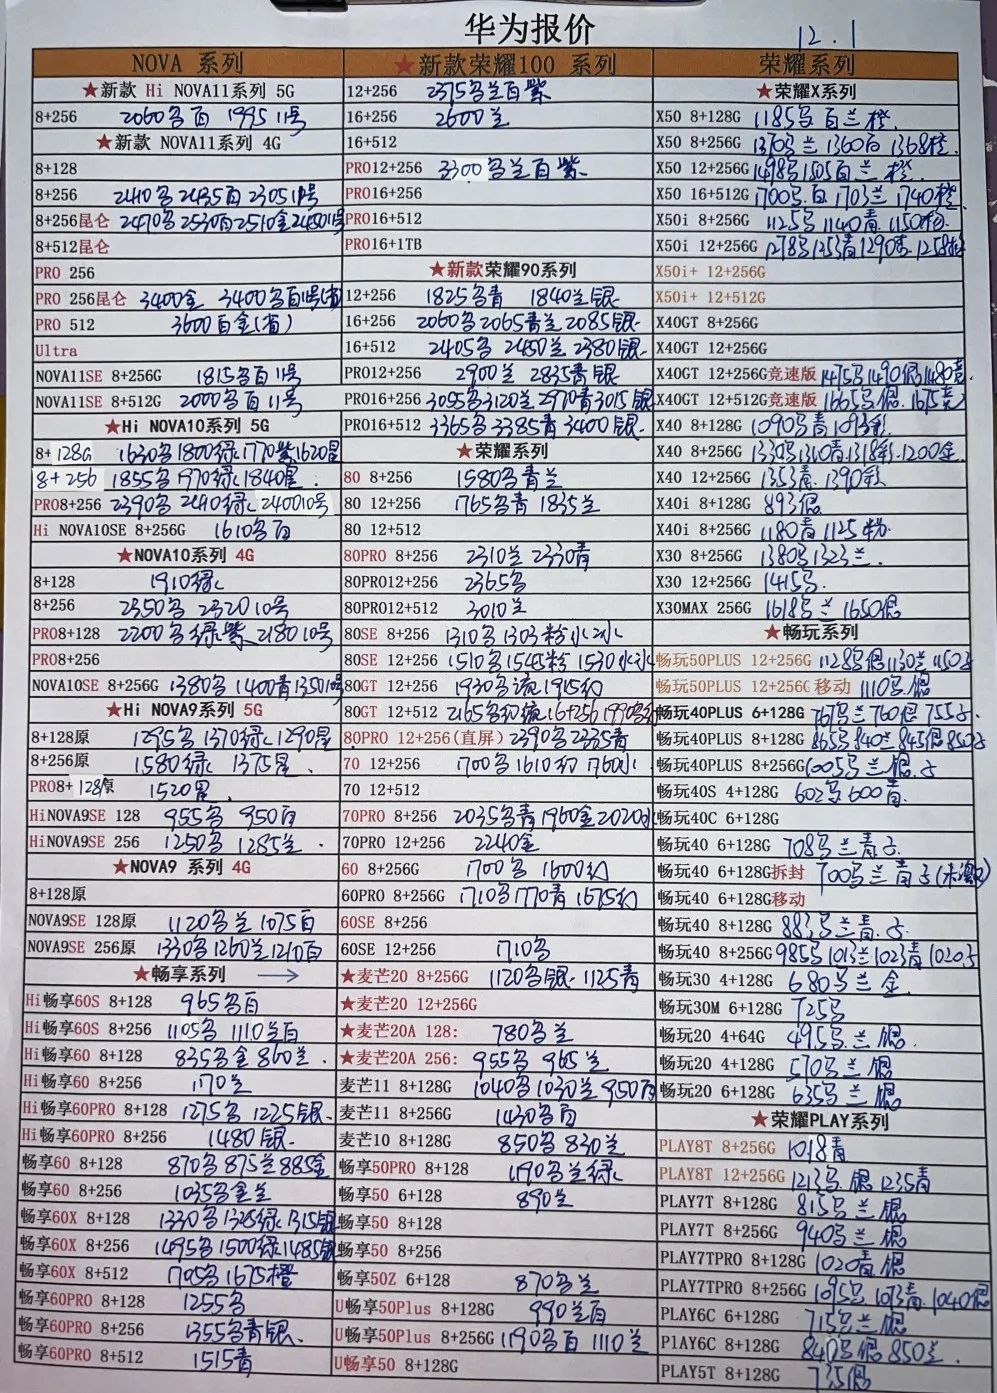 华为报价
12.1
NOVA 系列
★新款 Hi NOVA11系列 5G
8+256 2060多百 1995 11号
★新款 NOVA11系列 4G
8+128
8+256 2410多 2435百 2305 11号
8+256昆仑 2470多 2530百 2510金 2450 11号
8+512昆仑
PRO 256
PRO 256昆仑 3400金 3400多百11号(省)
PRO 512 3600百金(省)
Ultra
NOVA11SE 8+256G 1815多百 11号
NOVA11SE 8+512G 2000多百 11号
★Hi NOVA10系列 5G
8+128G 1630多 1800绿 1770紫 1620星
8+256 1855多 1970绿 1840星
PRO8+256 2390多 2410绿 2400 10号
Hi NOVA10SE 8+256G 1610多百
★NOVA10系列 4G
8+128 1910绿
8+256 2350多 2320 10号
PRO8+128 2200多绿紫 2180 10号
PRO8+256
NOVA10SE 8+256G 1380多 1400青 1350 10号
★Hi NOVA9系列 5G
8+128原 1295多 1370绿 1290星
8+256原 1580绿 1375星
PRO8+128原 1520星
HiNOVA9SE 128 955多 950百
HiNOVA9SE 256 1250多 1285兰
★NOVA9 系列 4G
8+128原
NOVA9SE 128原 1120多兰 1075百
NOVA9SE 256原 1330多 1260兰 1210百
★畅享系列 →
Hi畅享60S 8+128 965多百
Hi畅享60S 8+256 1105多 1110兰百
Hi畅享60 8+128 835多金 860兰
Hi畅享60 8+256 1170兰
Hi畅享60PRO 8+128 1275多 1225银
Hi畅享60PRO 8+256 1480银
畅享60 8+128 870多 875兰 885金
畅享60 8+256 1035多金兰
畅享60X 8+128 1330多 1325绿 1315银
畅享60X 8+256 1495多 1500绿 1485银
畅享60X 8+512 1705多 1675橙
畅享60PRO 8+128 1255多
畅享60PRO 8+256 1355多青银
畅享60PRO 8+512 1515青
★新款荣耀100 系列
12+256 2375多兰百紫
16+256 2600兰
16+512
PRO12+256 3300多兰百紫
PRO16+256
PRO16+512
PRO16+1TB
★新款荣耀90系列
12+256 1825多青 1840兰银
16+256 2060多 2065青兰 2085银
16+512 2405多 2450兰 2380银
PRO12+256 2900兰 2835青银
PRO16+256 3055多 3120兰 2970青 3015银
PRO16+512 3365多 3385青 3400银
★荣耀系列
80 8+256 1580青兰
80 12+256 1765多青 1835兰
80 12+512
80PRO 8+256 2310兰 2330青
80PRO12+256 2365多
80PRO12+512 3010兰
80SE 8+256 1310多 1303粉水冰
80SE 12+256 1510多 1545粉 1530水冰
80GT 12+256 1930多流 1915幻
80GT 12+512 2165多幻流 16+256 1990多幻
80PRO 12+256(直屏) 2390多 2335青
70 12+256 1700多 1610幻 1760水
70 12+512
70PRO 8+256 2035多青 1960金 2020冰
70PRO 12+256 2240金
60 8+256G 1700多 1600幻
60PRO 8+256G 1710多 1770青 1675幻
60SE 8+256
60SE 12+256 1710多
★麦芒20 8+256G 1120多银 1125青
★麦芒20 12+256G
★麦芒20A 128: 780多兰
★麦芒20A 256: 955多 965兰
麦芒11 8+128G 1040多 1030兰 950百
麦芒11 8+256G 1430多百
麦芒10 8+128G 850多 830兰
畅享50PRO 8+128 1190多兰绿
畅享50 6+128 890兰
畅享50 8+128
畅享50 8+256
畅享50Z 6+128 870多兰
U畅享50Plus 8+128G 990兰百
U畅享50Plus 8+256G 1190多百 1110兰
U畅享50 8+128G
荣耀系列
★荣耀X系列
X50 8+128G 1185多百兰橙
X50 8+256G 1370多兰 1360百 1368橙
X50 12+256G 1498多 1505百兰橙
X50 16+512G 1700多百 1703兰 1740橙
X50i 8+256G 1125多 1140青 1150粉
X50i 12+256G 1278多 1253青 1290 1258粉
X50i+ 12+256G
X50i+ 12+512G
X40GT 8+256G
X40GT 12+256G
X40GT 12+256G竞速版 1475多 1490银 1480青
X40GT 12+512G竞速版 1665多银 1675青
X40 8+128G 1090多青 1093彩
X40 8+256G 1330多 1310青 1318彩 1200金
X40 12+256G 1353青 1390彩
X40i 8+128G 893银
X40i 8+256G 1180青 1125粉
X30 8+256G 1380多 1323兰
X30 12+256G 1415多
X30MAX 256G 1618多兰 1650银
★畅玩系列
畅玩50PLUS 12+256G 1128多银 1130兰 1150子
畅玩50PLUS 12+256G移动 1110多银
畅玩40PLUS 6+128G 767多兰 760银 755子
畅玩40PLUS 8+128G 865多 840兰 845银 850子
畅玩40PLUS 8+256G 1005多兰银子
畅玩40S 4+128G 602多 600青
畅玩40C 6+128G
畅玩40 6+128G 708多兰青子
畅玩40 6+128G拆封 700多兰青子(未激)
畅玩40 6+128G移动
畅玩40 8+128G 883多兰青子
畅玩40 8+256G 985多 1013兰 1023青 1020子
畅玩30 4+128G 680多兰金
畅玩30M 6+128G 725多
畅玩20 4+64G 495多兰银
畅玩20 4+128G 570多兰银
畅玩20 6+128G 635多兰银
★荣耀PLAY系列
PLAY8T 8+256G 1018青
PLAY8T 12+256G 1213多银 1235青
PLAY7T 8+128G 815多兰银
PLAY7T 8+256G 940多兰银
PLAY7TPRO 8+128G 1020青银
PLAY7TPRO 8+256G 1095多 1093青 1040银
PLAY6C 6+128G 715多兰银
PlAY6C 8+128G 840多银 850兰
PLAY5T 8+128G 735银